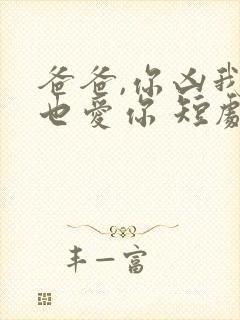 爸爸,你凶我
也爱你 短剧
丰一富